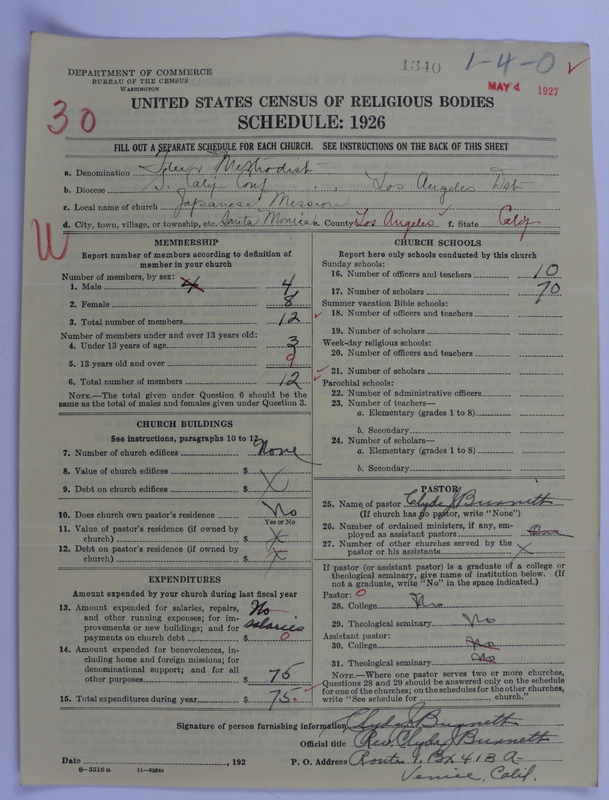 1340
1-4-0
MAY 4 1927
DEPARTMENT OF COMMERCE
BUREAU OF THE CENSUS
WASHINGTON
30
UNITED STATES CENSUS OF RELIGIOUS BODIES
SCHEDULE: 1926
FILL OUT A SEPARATE SCHEDULE FOR EACH CHURCH. SEE INSTRUCTIONS ON THE BACK OF THIS SHEET
a. Denomination Free Methodist
b. Diocese S. Calif Conf , , Los Angeles Dst
c. Local name of church Japanese Mission
d. City, town, village, or township, etc. Santa Monica e. County Los Angeles f. State Calif
W
MEMBERSHIP
Report number of members according to definition of
member in your church
Number of members, by sex:
1. Male 4 4
2. Female 8
3. Total number of members 12
Number of members under and over 13 years old:
4. Under 13 years of age 3
5. 13 years old and over 9
6. Total number of members 12
NOTE.—The total given under Question 6 should be the
same as the total of males and females given under Question 3.
CHURCH BUILDINGS
See instructions, paragraphs 10 to 12
7. Number of church edifices None
8. Value of church edifices $
9. Debt on church edifices $ X
10. Does church own pastor's residence No
Yes or No
11. Value of pastor's residence (if owned by
church) $ X
12. Debt on pastor's residence (if owned by
church) $ X
EXPENDITURES
Amount expended by your church during last fiscal year
13. Amount expended for salaries, repairs,
and other running expenses; for im-
provements or new buildings; and for
payments on church debt $ No salaries 0
14. Amount expended for benevolences, in-
cluding home and foreign missions; for
denominational support; and for all
other purposes $ 75
15. Total expenditures during year $ 75.
CHURCH SCHOOLS
Report here only schools conducted by this church
Sunday schools:
16. Number of officers and teachers 10
17. Number of scholars 70
Summer vacation Bible schools:
18. Number of officers and teachers
19. Number of scholars
Week-day religious schools:
20. Number of officers and teachers
21. Number of scholars
Parochial schools:
22. Number of administrative officers
23. Number of teachers—
a. Elementary (grades 1 to 8)
b. Secondary
24. Number of scholars—
a. Elementary (grades 1 to 8)
b. Secondary
PASTOR
25. Name of pastor Clyde J Burnett
(If church has no pastor, write "None")
26. Number of ordained ministers, if any, em-
ployed as assistant pastors
27. Number of other churches served by the
pastor or his assistants X
If pastor (or assistant pastor) is a graduate of a college or
theological seminary, give name of institution below. (If
not a graduate, write "No" in the space indicated.)
Pastor: 0
28. College No
29. Theological seminary No
Assistant pastor:
30. College No
31. Theological seminary No
NOTE.—Where one pastor serves two or more churches,
Questions 28 and 29 should be answered only on the schedule
for one of the churches; on the schedules for the other churches,
write "See schedule for church."
Signature of person furnishing information Clyde J Burnett
Official title Rev. Clyde J Burnett
Date , 192 P. O. Address Route 1, Bx 418 A-
6-5516a Venice, Calif.